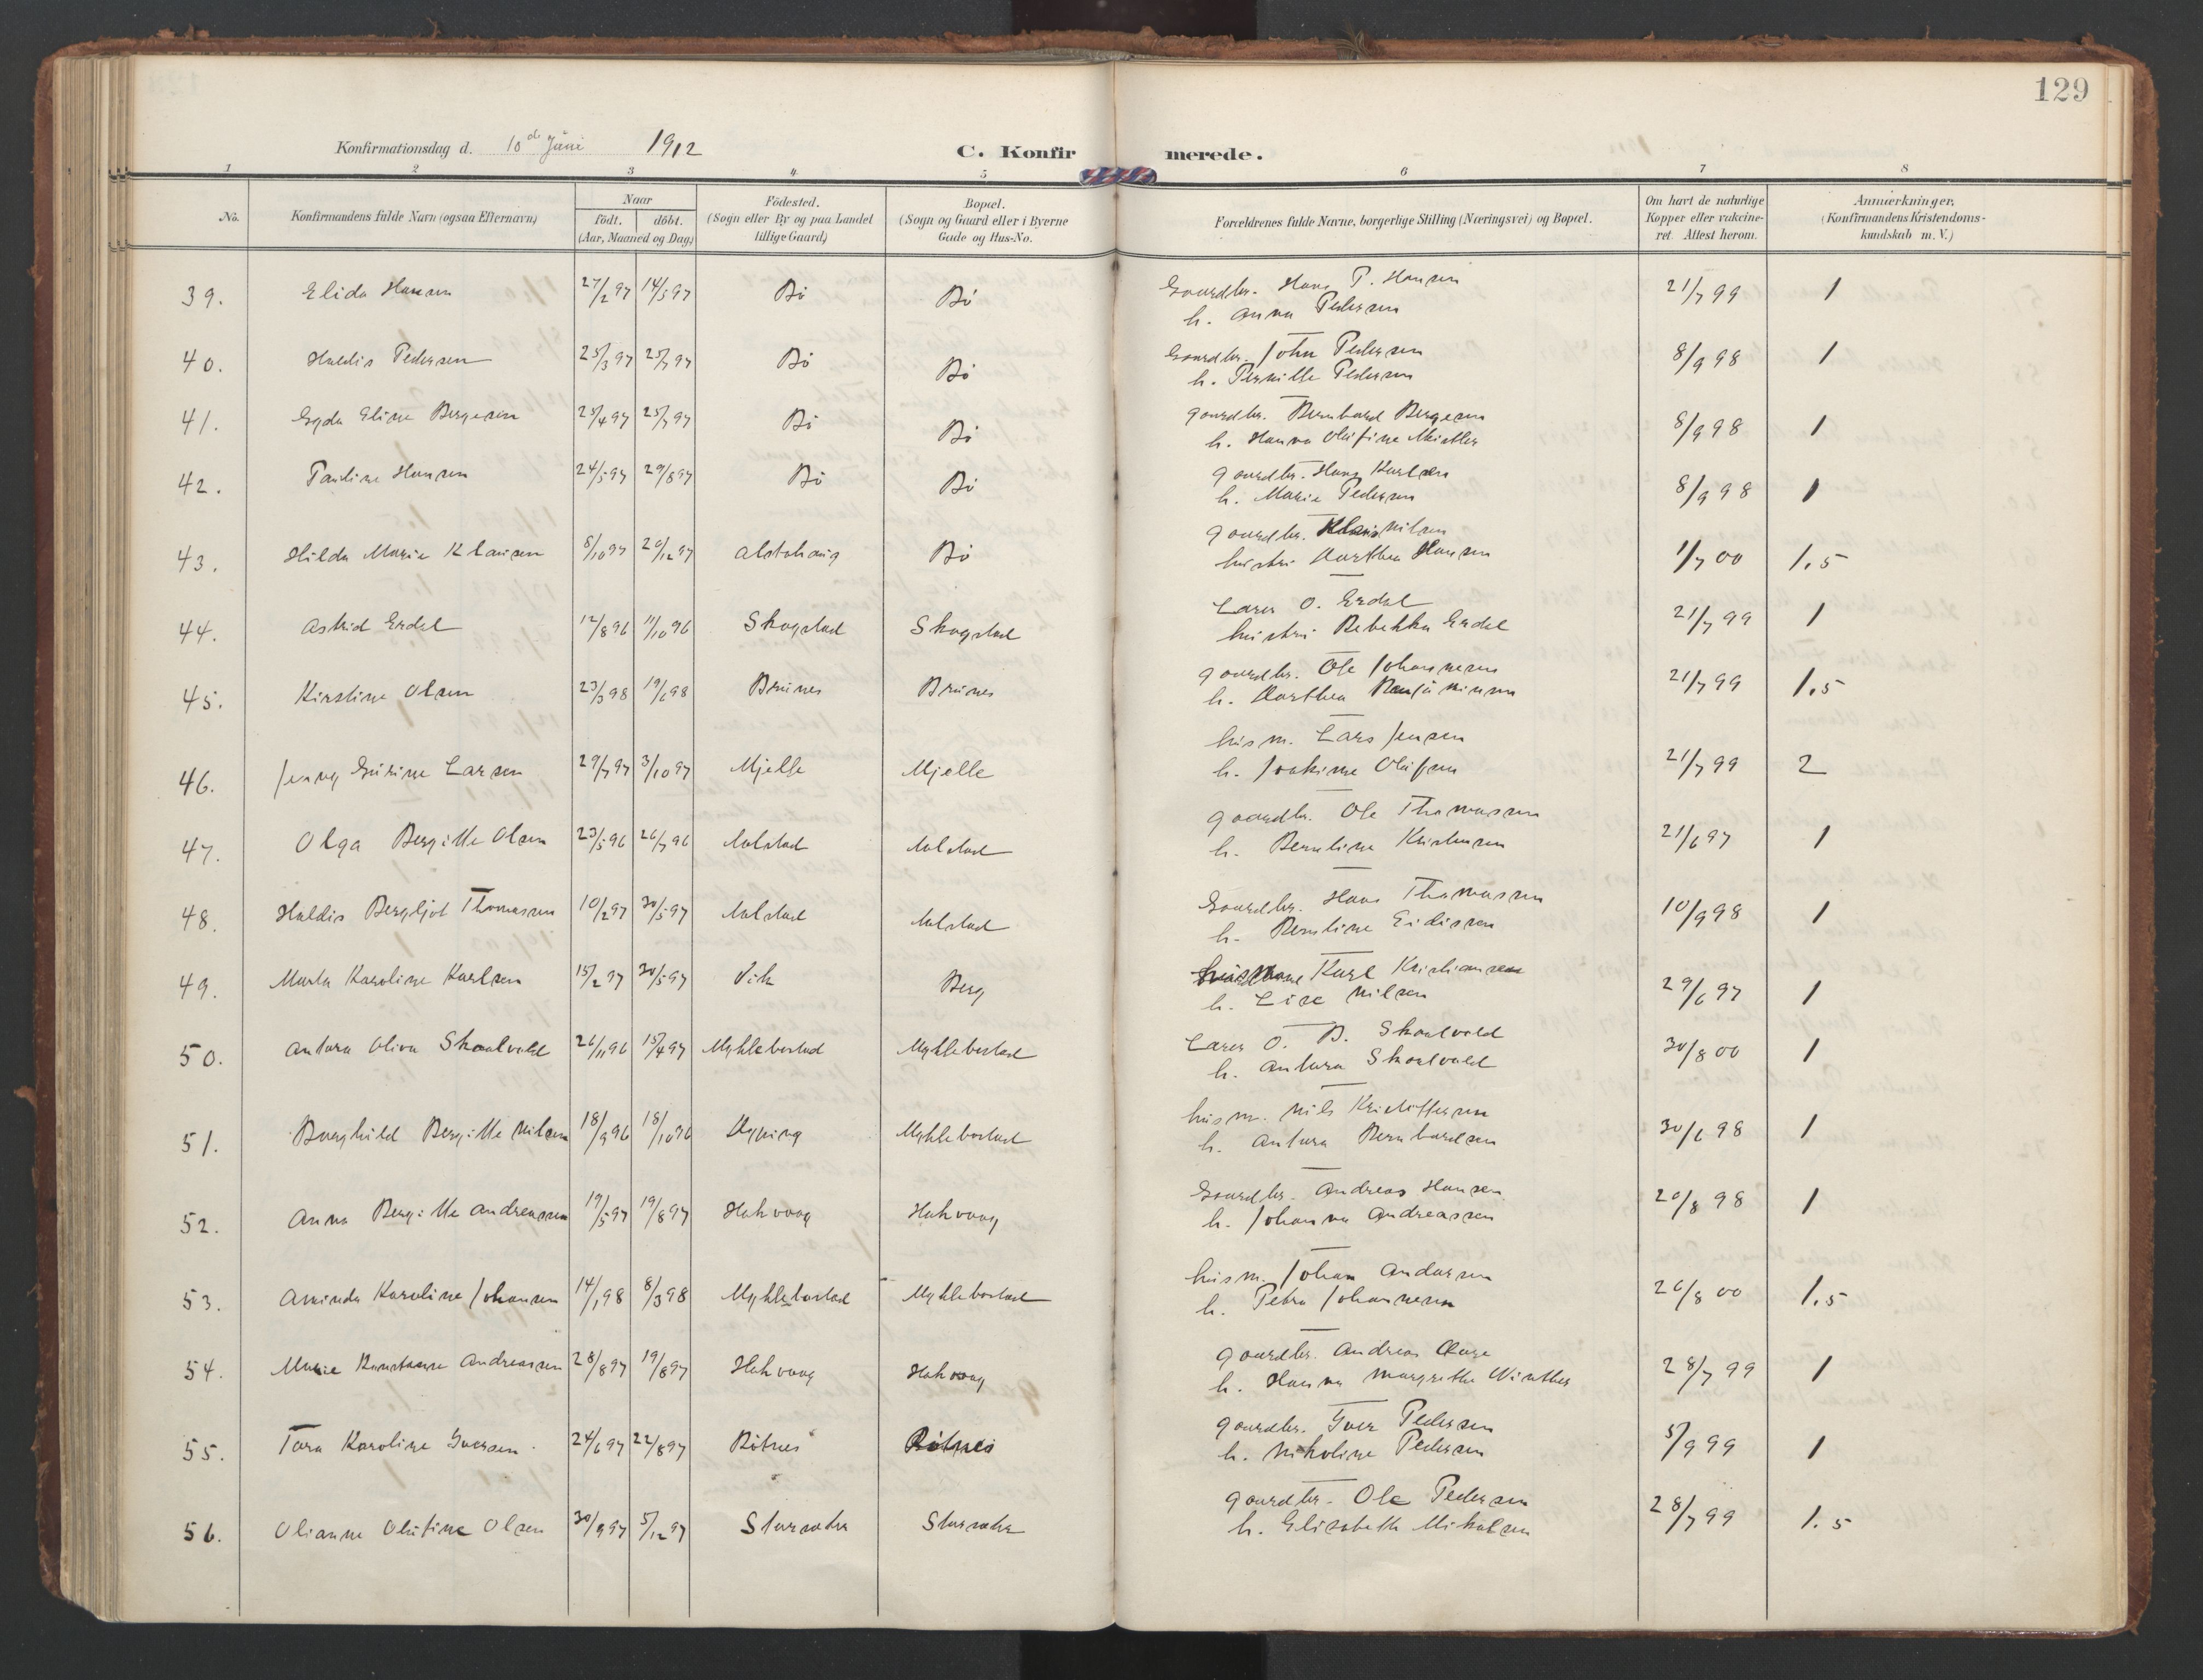 129
Konfirmationsdag d. 10de Juni 1912
C. Konfirmerede.
1 2 3 4 5 6 7 8
No.
Konfirmandens fulde Navn (ogsaa Efternavn)
Naar
født. døbt.
(Aar, Maaned og Dag)
Fødested.
(Sogn eller By og paa Landet
tillige Gaard)
Bopæl.
(Sogn og Gaard eller i Byerne
Gade og Hus-No.
Forældrenes fulde Navne, borgerlige Stilling (Næringsvei) og Bopæl.
Om havt de naturlige
Kopper eller vakcine-
ret. Attest herom.
Anmærkninger.
(Konfirmandens Kristendoms-
kundskab m. V.)
39. Elida Hansen 27/2 97 14/5 97 Bø Bø Gaardbr. Hans P. Hansen 21/7 99 1
h. Anna Pedersen
40. Haldis Pedersen 25/3 97 25/7 97 Bø Bø Gaardbr. John Pedersen 8/9 98 1
h. Pernille Pedersen
41. Egda Eline Bergesen 25/4 97 25/7 97 Bø Bø gaardbr. Bernhard Bergesen 8/9 98 1
h. Hanna Olufine
42. Pauline Hansen 24/5 97 29/8 97 Bø Bø gaardbr. Hans Karlsen 8/9 98 1
h. Marie Pedersen
43. Hilda Marie Klausen 8/10 97 20/12 97 Alstahaug Bø gaardbr. Klaus Nilsen 1/7 00 1.5
hustru Dorthea Hansen
44. Astrid Erdal 12/8 96 11/10 96 Skogstad Skogstad Lærer O. Erdal 21/7 99 1
hustru Rebekka Erdal
45. Kirstine Olsen 23/3 98 19/6 98 Brunes Brunes gaardbr. Ole Johannesen 21/7 99 1.5
h. Dorthea
46. Jenny Gurine Larsen 29/7 97 3/10 97 Mjelle Mjelle husm. Lars Jensen 21/7 99 2
h. Joakime Olufsen
47. Olga Bergitte Olsen 23/5 96 26/7 96 Aalstad Aalstad gaardbr. Ole Thomassen 21/6 97 1
h. Bernline Kristensen
48. Haldis Bergljot Thomassen 10/2 97 30/5 97 Aalstad Aalstad Gaardbr. Hans Thomassen 10/9 98 1
h. Berntine Eidissen
49. Marta Karoline Karlsen 15/2 97 30/5 97 Vik Berg Karl Kristiansen 29/6 97 1
h. Lise Nilsen
50. Antora Oliva Skaalvold 26/11 96 15/4 97 Myklebostad Myklebostad Lærer O. B. Skaalvold 30/8 00 1
h. Antora Skaalvold
51. Borghild Bergitte Nilsen 18/9 96 18/10 96 Dyping Myklebostad husm. Nils Kristoffersen 30/6 98 1
h. Antora Bernhardsen
52. Anna Bergitte Andreassen 19/5 97 19/8 97 Hakvaag Hakvaag Gaardbr. Andreas Hansen 20/8 98 1
h. Johanna Andreassen
53. Aminda Karoline Johansen 14/1 98 8/3 98 Myklebostad Myklebostad husm. Johan Andersen 26/8 00 1.5
h. Petra Johannesen
54. Marie Konstanse Andreassen 28/8 97 19/8 97 Hakvaag Hakvaag gaardbr. Andreas 28/7 99 1
h. Hanna Margrethe Winther
55. Tora Karoline Iversen 24/6 97 22/8 97 Røtnes Røtnes gaardbr. Iver Pedersen 5/9 99 1
h. Nikoline Pedersen
56. Olianne Olufine Olsen 30/9 97 5/12 97 Storsæter Storsæter gaardbr. Ole Pedersen 28/7 99 1.5
h. Elisabeth Mikalsen